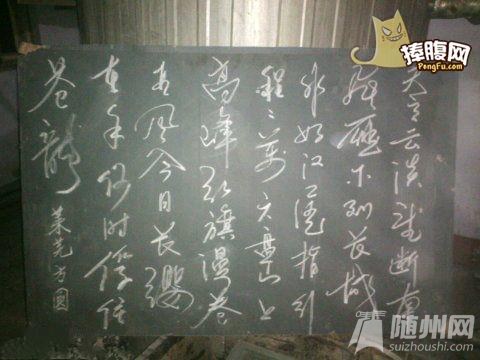 捧腹网
PengFu.com
天高云淡望断南
飞雁不到长城
非好汉屈指行
程二萬六盘山上
高峰红旗漫卷
西风今日长缨
在手何时缚住
苍龍 莱芜方圆
随州网
suizhoushi.com